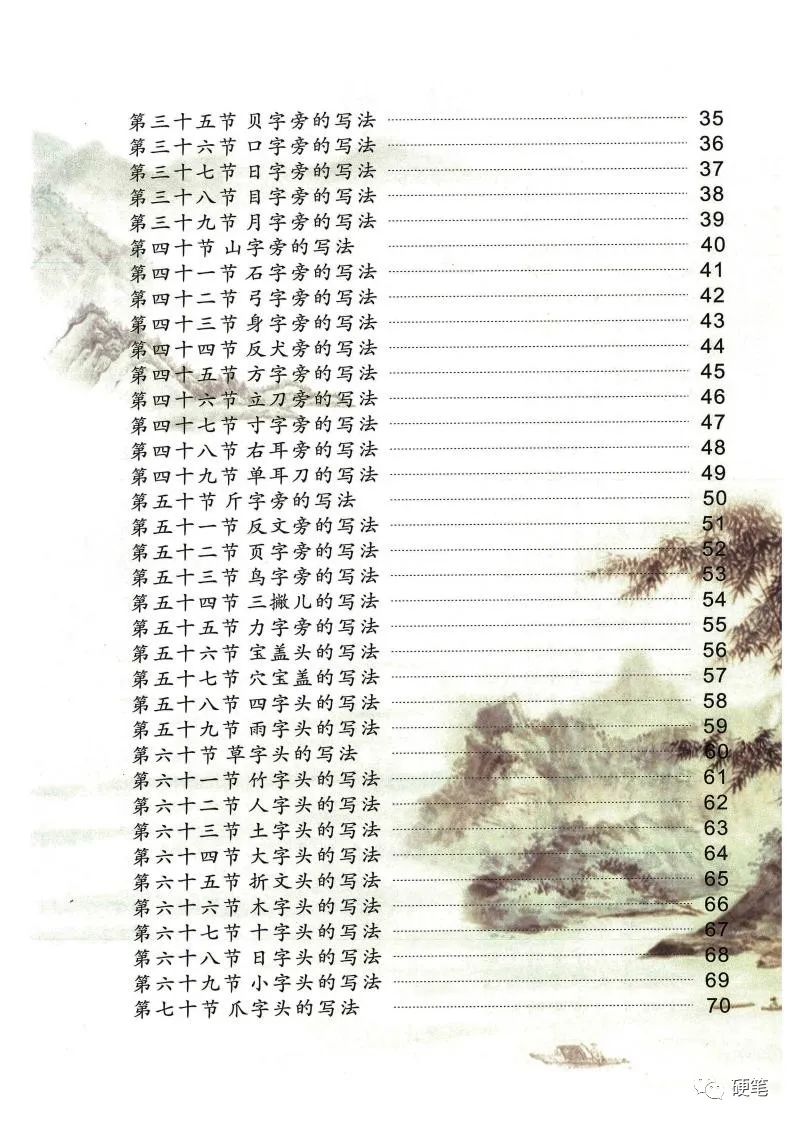 第三十五节 贝字旁的写法 35
第三十六节 口字旁的写法 36
第三十七节 日字旁的写法 37
第三十八节 目字旁的写法 38
第三十九节 月字旁的写法 39
第四十节 山字旁的写法 40
第四十一节 石字旁的写法 41
第四十二节 弓字旁的写法 42
第四十三节 身字旁的写法 43
第四十四节 反犬旁的写法 44
第四十五节 方字旁的写法 45
第四十六节 立刀旁的写法 46
第四十七节 寸字旁的写法 47
第四十八节 右耳旁的写法 48
第四十九节 单耳刀的写法 49
第五十节 斤字旁的写法 50
第五十一节 反文旁的写法 51
第五十二节 页字旁的写法 52
第五十三节 鸟字旁的写法 53
第五十四节 三撇儿的写法 54
第五十五节 力字旁的写法 55
第五十六节 宝盖头的写法 56
第五十七节 穴宝盖的写法 57
第五十八节 四字头的写法 58
第五十九节 雨字头的写法 59
第六十节 草字头的写法 60
第六十一节 竹字头的写法 61
第六十二节 人字头的写法 62
第六十三节 土字头的写法 63
第六十四节 大字头的写法 64
第六十五节 折文头的写法 65
第六十六节 木字头的写法 66
第六十七节 十字头的写法 67
第六十八节 日字头的写法 68
第六十九节 小字头的写法 69
第七十节 爪字头的写法 70
硬笔